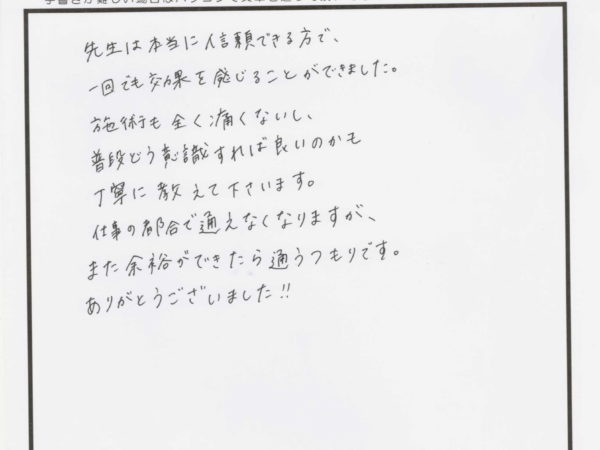 先生は本当に信頼できる方で、
一回でも効果を感じることができました。
施術も全く痛くないし、
普段どう意識すれば良いのかも
丁寧に教えて下さいます。
仕事の都合で通えなくなりますが、
また余裕ができたら通うつもりです。
ありがとうございました!!